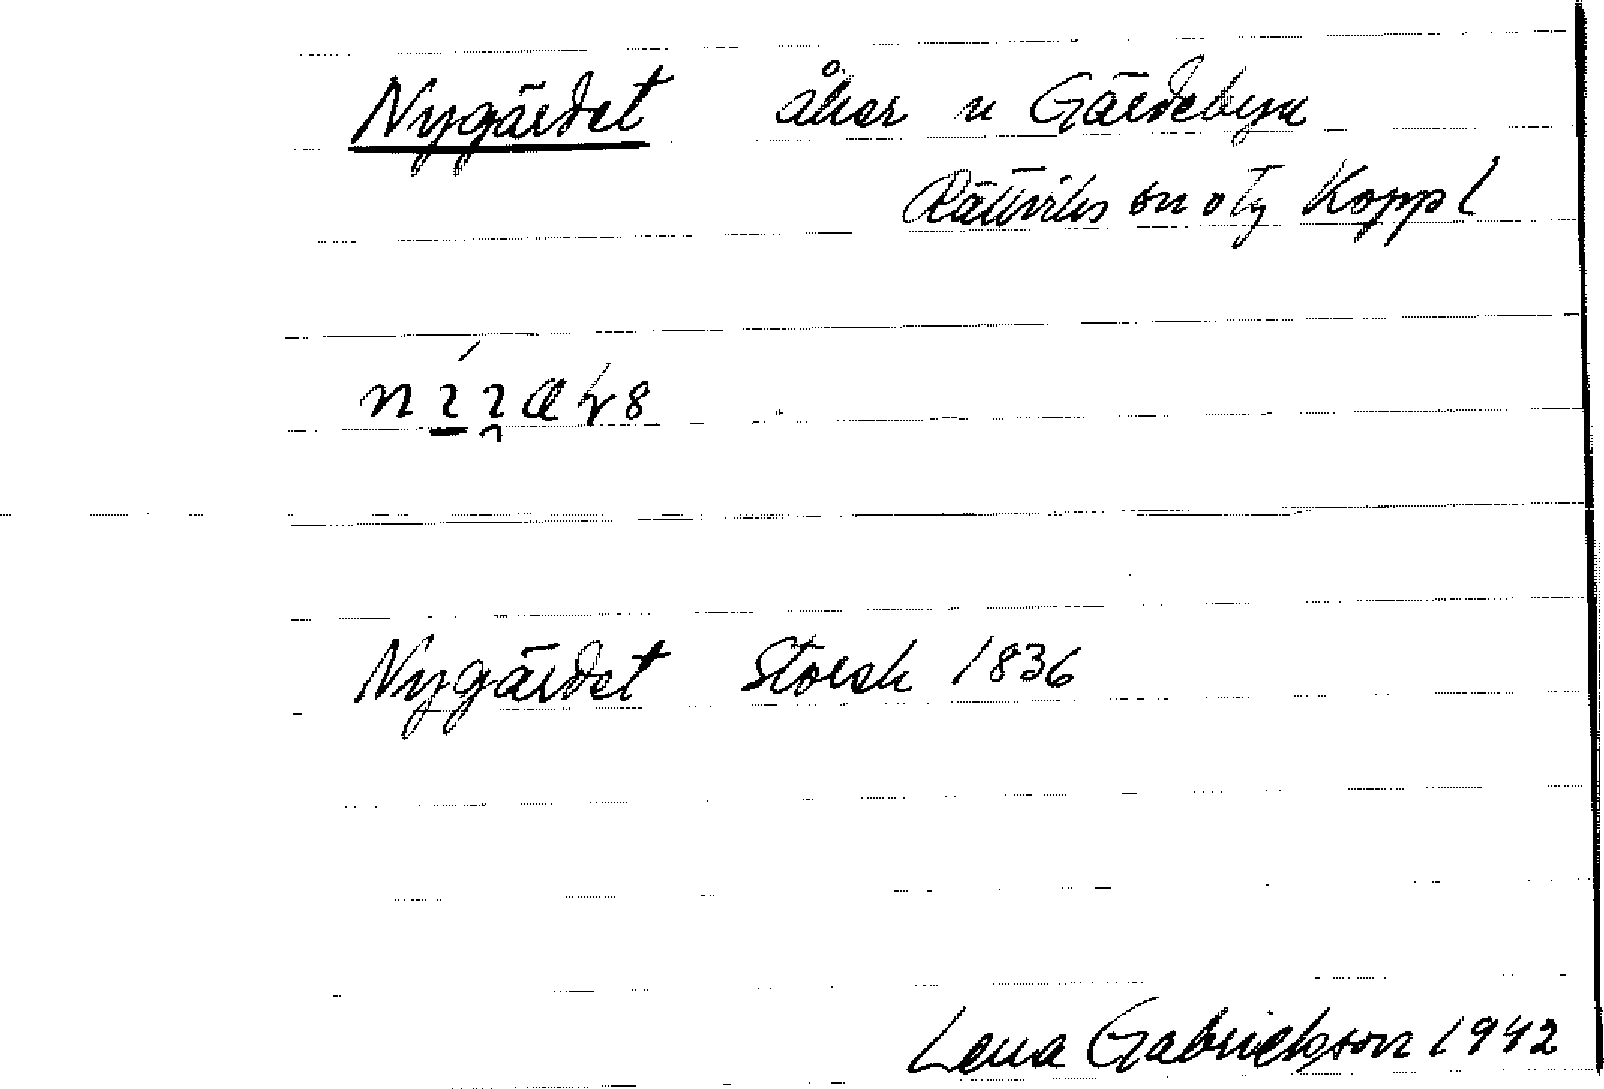 Nygärdet åker n Gärdebyn
Rättviks sn o tg Koppl
Nygärdet Storsk 1836
Lena Gabrielsson 1942